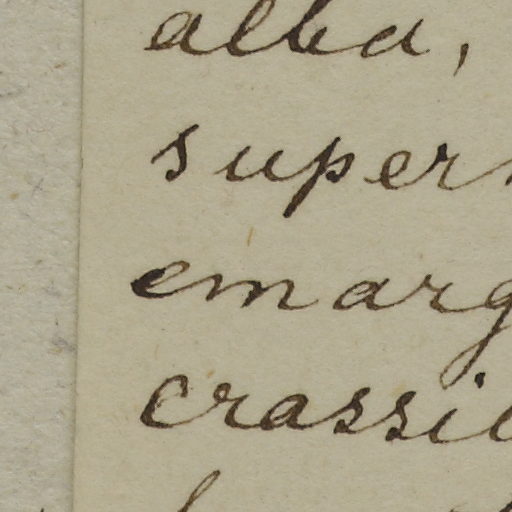 alba,
super
emarg
crassi